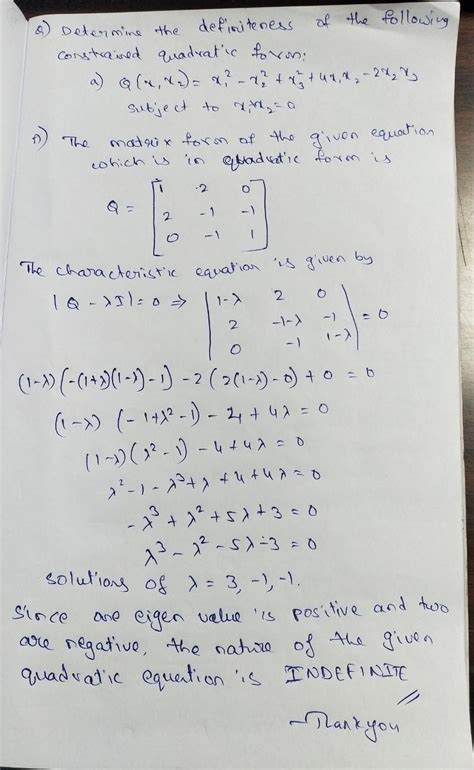 Q) Determine the definiteness of the following
constrained quadratic form:
a) Q(x1 x2) = x1² - x2² + x3² + 4x1x2 - 2x2x3
subject to x1x2 = 0
A) The matrix form of the given equation
which is in quadratic form is
Q = [ 1 2 0
2 -1 -1
0 -1 1 ]
The characteristic equation is given by
|Q - λI| = 0 ⇒ | 1-λ 2 0
2 -1-λ -1
0 -1 1-λ | = 0
(1-λ)(-(1+λ)(1-λ)-1) - 2(2(1-λ)-0) + 0 = 0
(1-λ)(-1+λ²-1) - 4 + 4λ = 0
(1-λ)(λ²-1) - 4 + 4λ = 0
λ² - 1 - λ³ + λ + 4 + 4λ = 0
-λ³ + λ² + 5λ + 3 = 0
λ³ - λ² - 5λ - 3 = 0
solutions of λ = 3, -1, -1.
Since one eigen value is positive and two
are negative, the nature of the given
quadratic equation is INDEFINITE
- Thank you